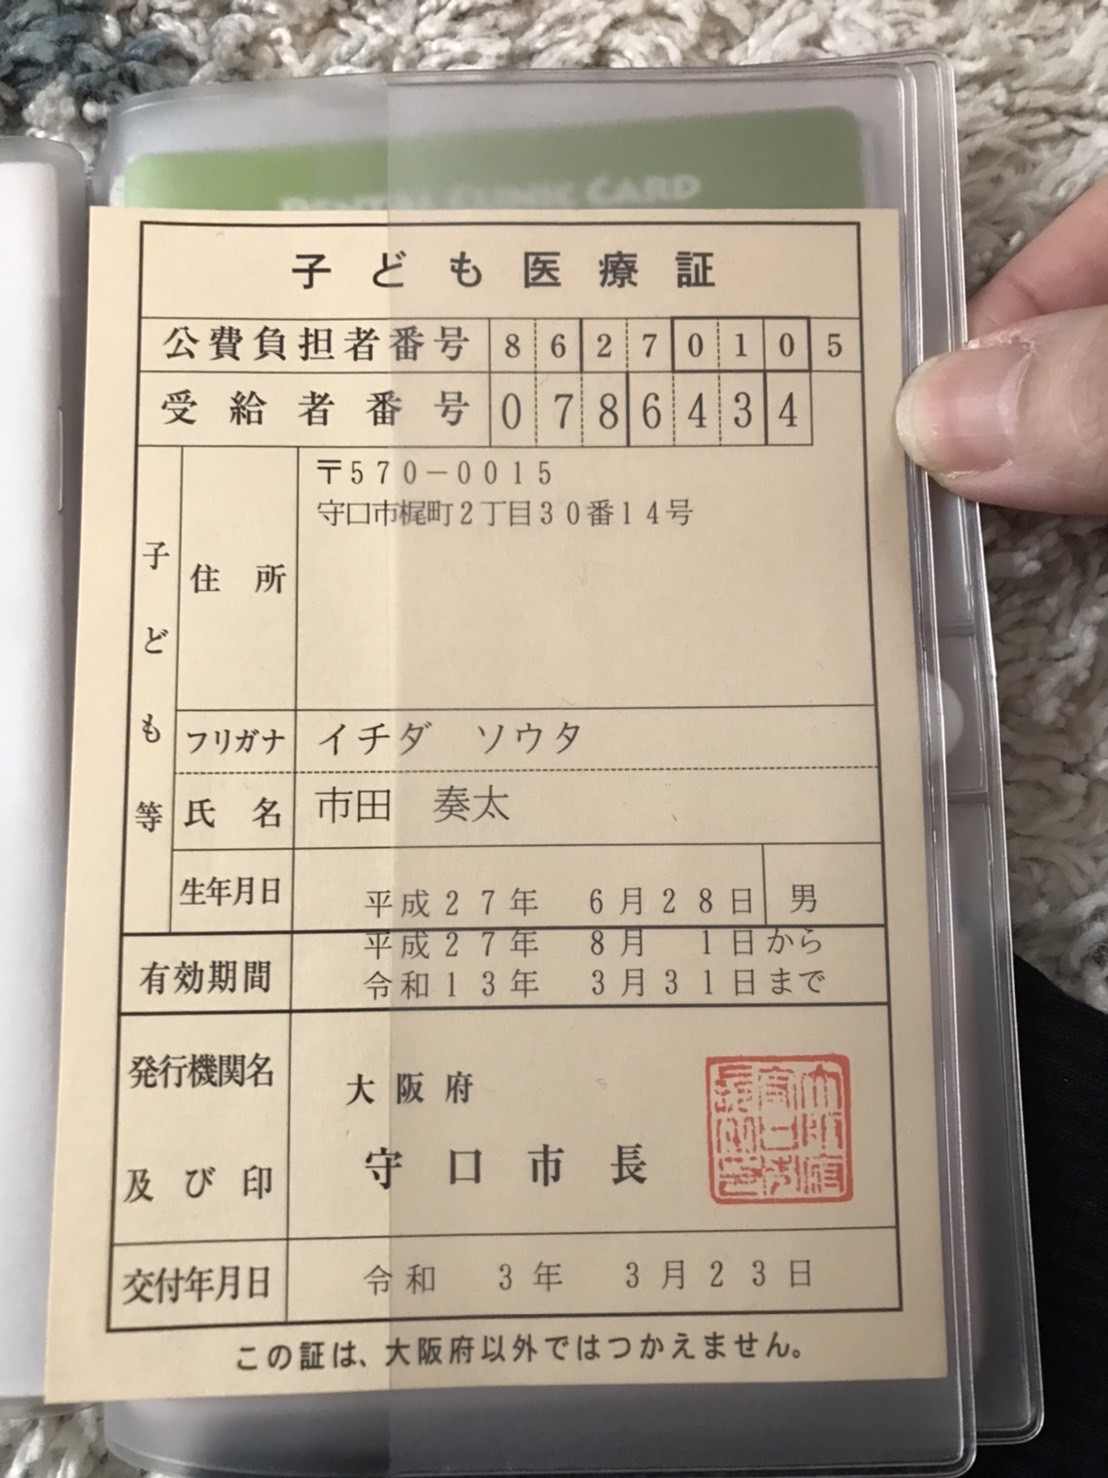 DENTAL CLINIC CARD
子ども医療証
公費負担者番号 86270105
受給者番号 0786434
子ども等
住所
〒570－0015
守口市梶町2丁目30番14号
フリガナ イチダ ソウタ
氏名 市田 奏太
生年月日 平成27年 6月28日 男
有効期間
平成27年 8月 1日から
令和13年 3月31日まで
発行機関名
及び印
大阪府
守口市長
交付年月日 令和 3年 3月23日
この証は、大阪府以外ではつかえません。